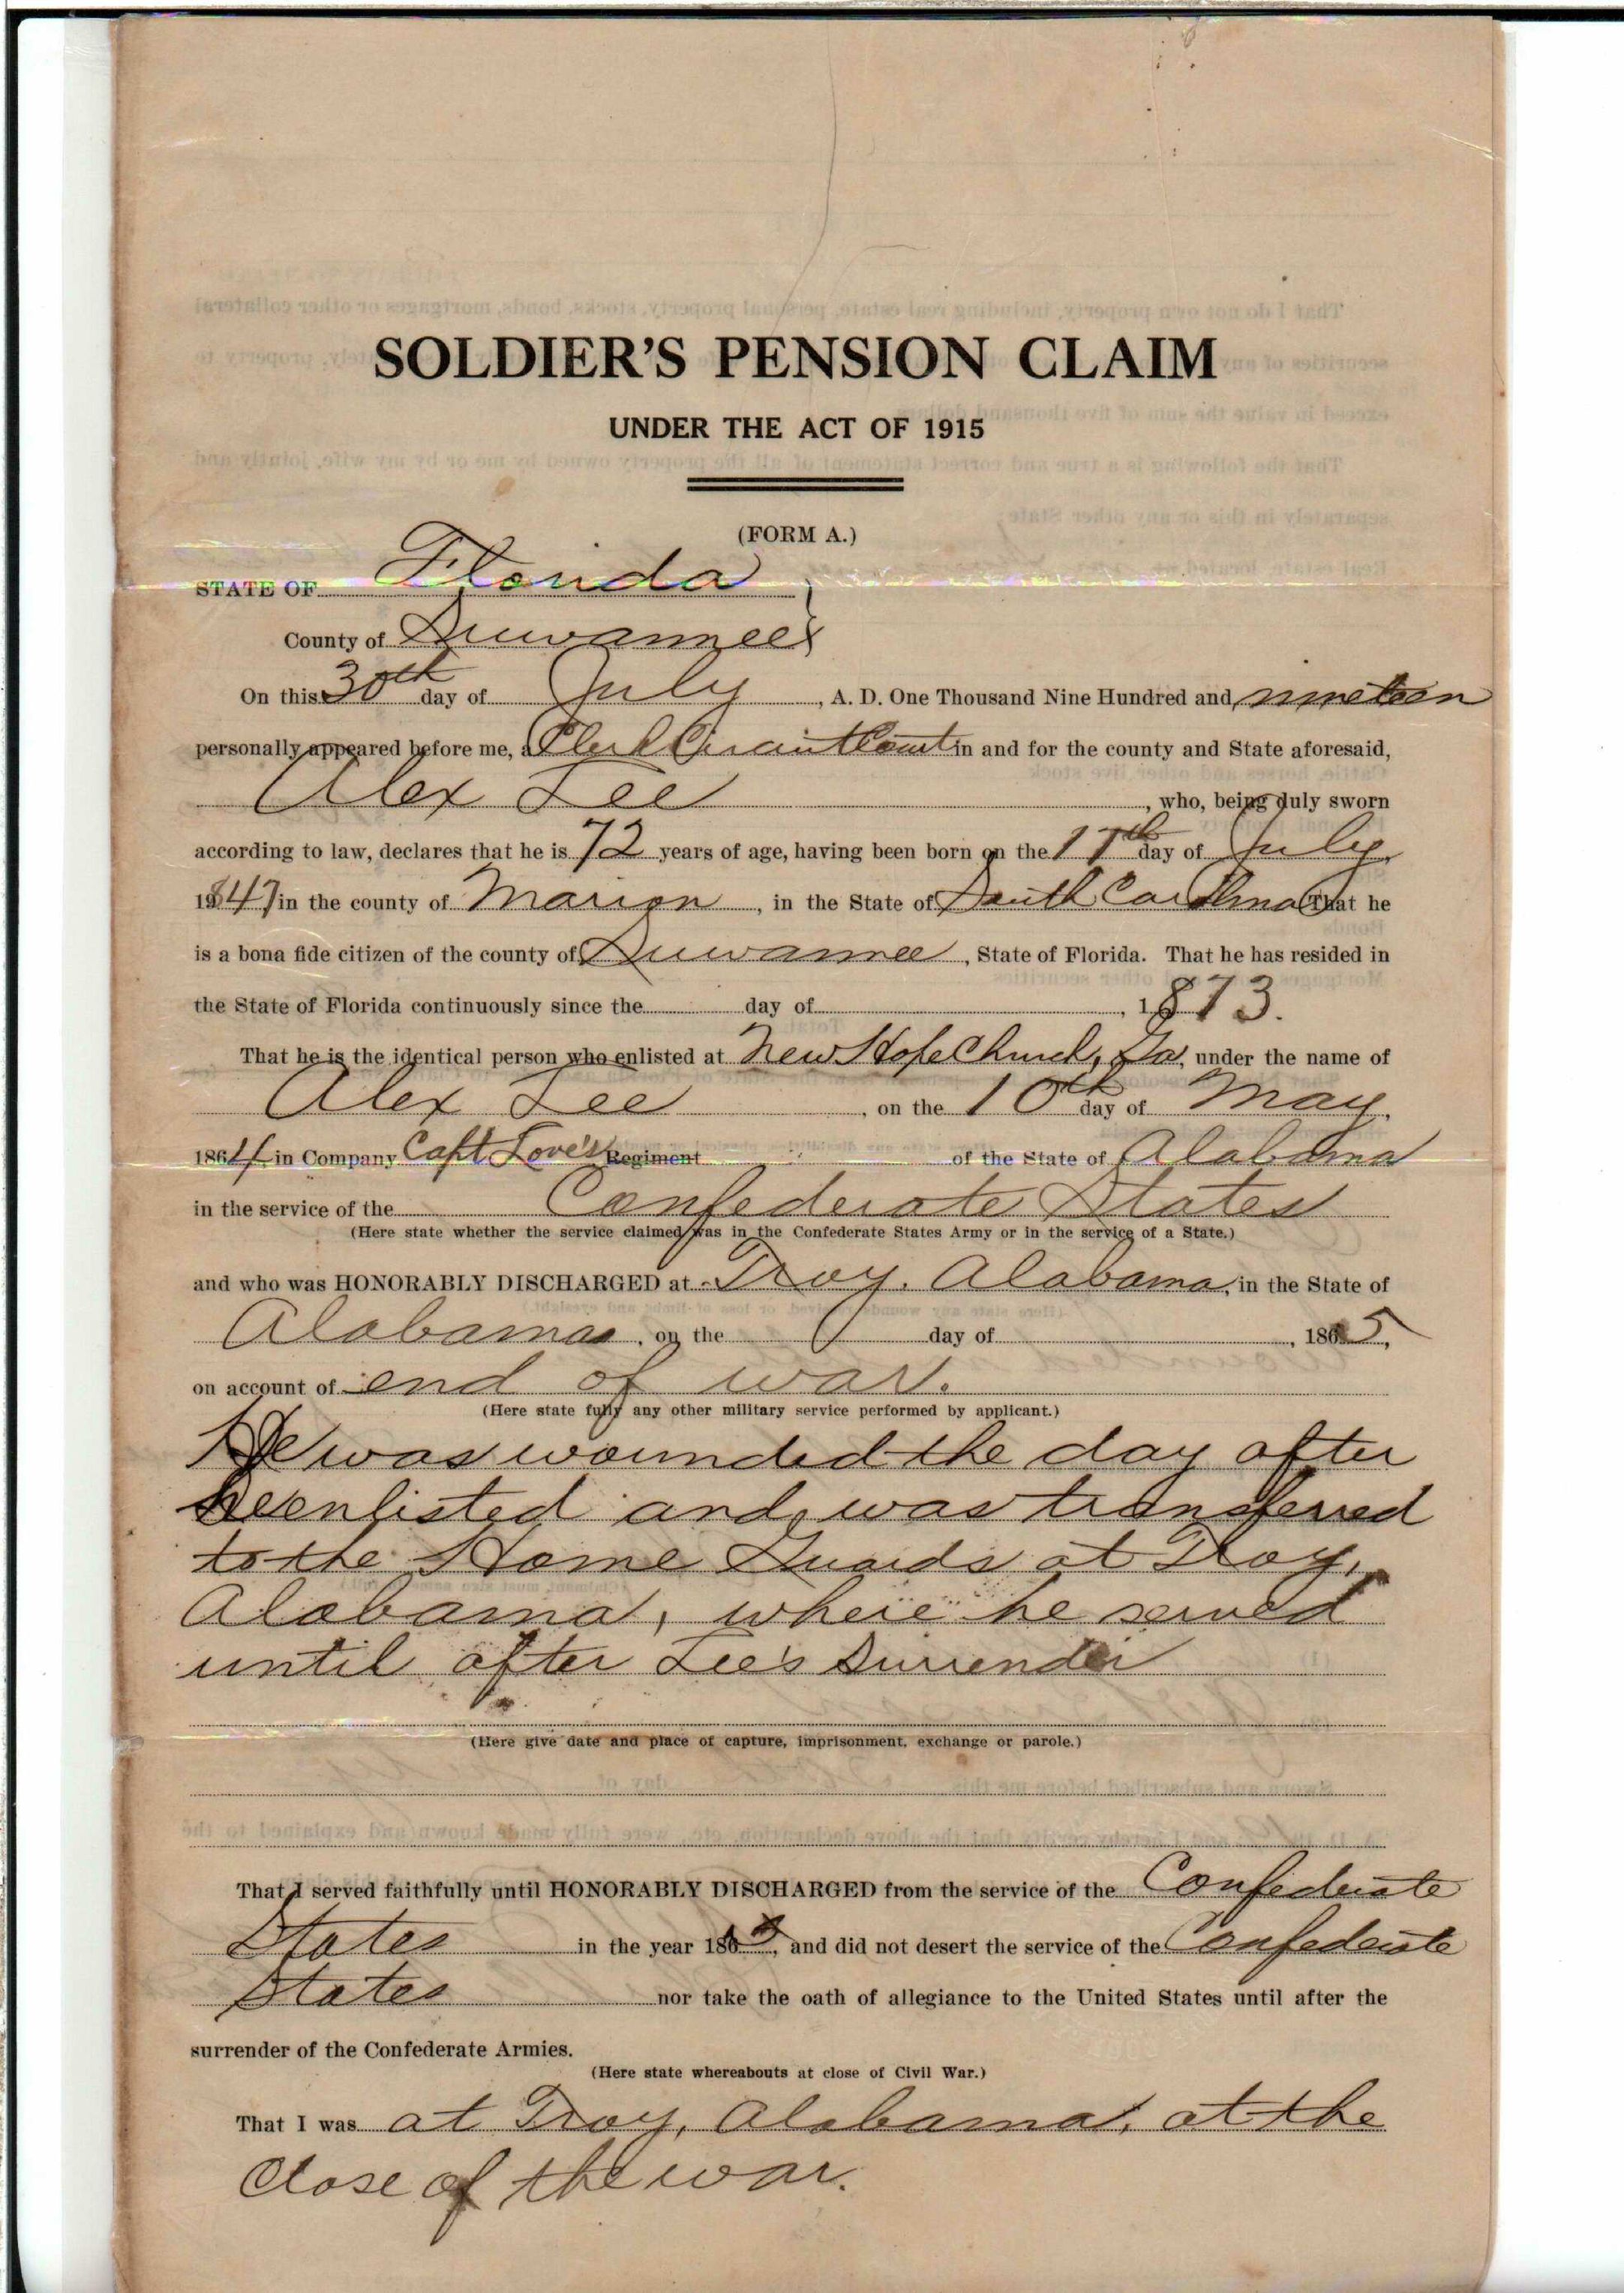 SOLDIER'S PENSION CLAIM
UNDER THE ACT OF 1915
(FORM A.)
STATE OF Florida
County of Suwannee
On this 30th day of July, A. D. One Thousand Nine Hundred and nineteen
personally appeared before me, a Clerk Circuit Court in and for the county and State aforesaid,
Alex Lee, who, being duly sworn
according to law, declares that he is 72 years of age, having been born on the 17th day of July,
1847 in the county of Marion, in the State of South Carolina That he
is a bona fide citizen of the county of Suwannee, State of Florida. That he has resided in
the State of Florida continuously since the day of , 1873.
That he is the identical person who enlisted at New Hope Church, Ga, under the name of
Alex Lee, on the 10th day of May,
1864 in Company Capt Love's Regiment of the State of Alabama
in the service of the Confederate States
(Here state whether the service claimed was in the Confederate States Army or in the service of a State.)
and who was HONORABLY DISCHARGED at Troy, Alabama, in the State of
Alabama, on the day of , 1865,
on account of end of war.
(Here state fully any other military service performed by applicant.)
He was wounded the day after
he enlisted and was transferred
to the Home Guards at Troy,
Alabama, where he served
until after Lee's surrender
(Here give date and place of capture, imprisonment, exchange or parole.)
That I served faithfully until HONORABLY DISCHARGED from the service of the Confederate
States in the year 1865, and did not desert the service of the Confederate
States nor take the oath of allegiance to the United States until after the
surrender of the Confederate Armies.
(Here state whereabouts at close of Civil War.)
That I was at Troy, Alabama, at the
close of the war.